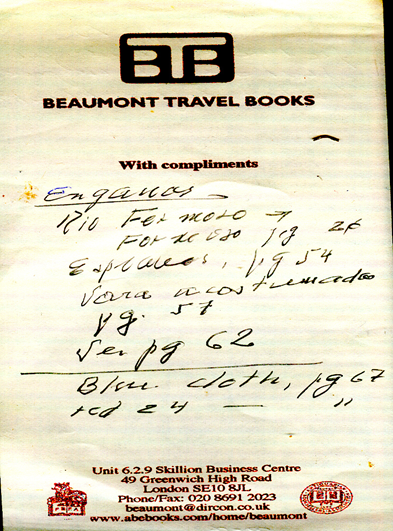 BTB
BEAUMONT TRAVEL BOOKS
With compliments
Enganos
Rio Formoso →
Formoso pg 26
pg 54
pg. 57
Ver pg 62
Blue cloth, pg 67
24 — "
Unit 6.2.9 Skillion Business Centre
49 Greenwich High Road
London SE10 8JL
Phone/Fax: 020 8691 2023
beaumont@dircon.co.uk
www.abebooks.com/home/beaumont